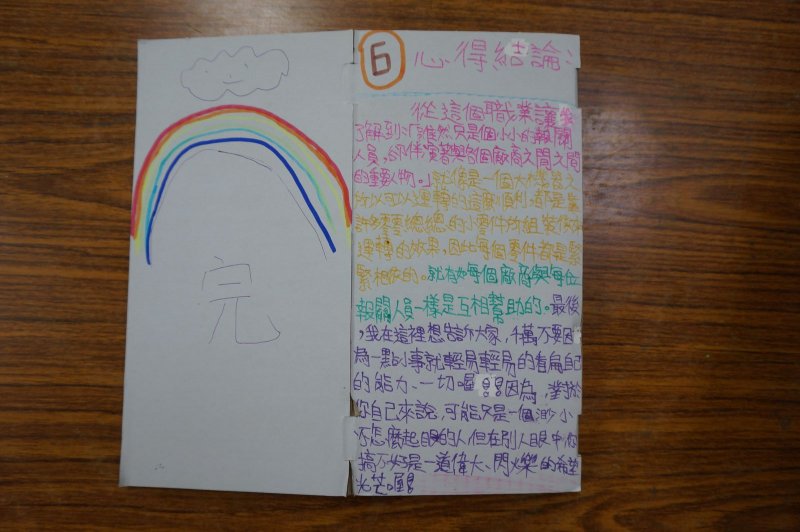 完
6 心得結論:
從這個職業讓我
了解到:「雖然只是個小小的報關
人員,卻伴演著與各個廠商之間之間
的重要人物。」就像是一個大機器之
所以可以運轉的這麼順利,都是靠
許多零零總總的小零件所組裝
運轉的效果,因此每個零件都是緊
緊相依的。就有如每個廠商與每位
報關人員一樣是互相幫助的。最後
,我在這裡想告訴大家,千萬不要因
為一點小事就輕易輕易的看扁自己
的能力、一切喔!因為,對於
你自己來說,可能只是一個渺小
不怎麼起眼的人但在別人眼中你
搞不好是一道偉大、閃爍的希望
光芒喔!